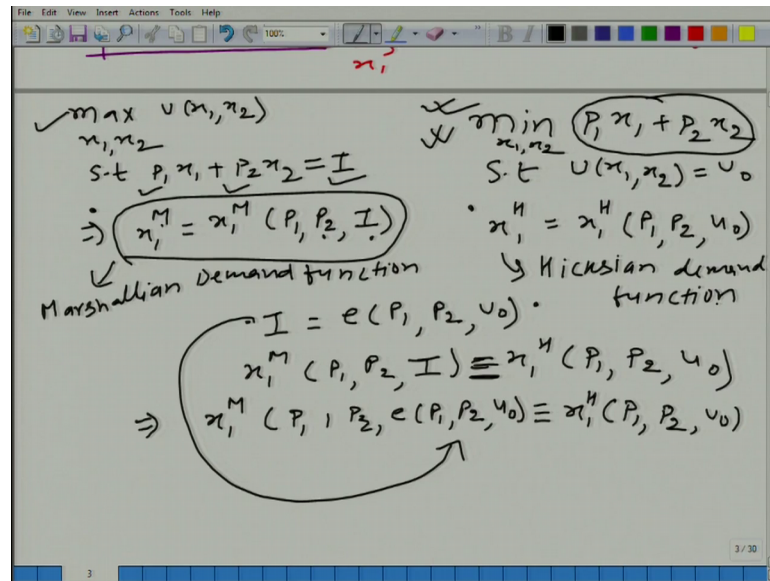 File Edit View Insert Actions Tools Help
100%
x₁
max U(x₁,x₂)
x₁,x₂
s.t P₁x₁ + P₂x₂ = I
⇒ x₁ᴹ = x₁ᴹ (P₁, P₂, I)
Marshallian Demand function
min P₁x₁ + P₂x₂
x₁,x₂
s.t U(x₁,x₂) = u₀
x₁ᴴ = x₁ᴴ (P₁, P₂, u₀)
Hicksian demand
function
I = e(P₁, P₂, u₀)
x₁ᴹ (P₁, P₂, I) ≡ x₁ᴴ (P₁, P₂, u₀)
⇒ x₁ᴹ (P₁, P₂, e(P₁,P₂,u₀) ≡ x₁ᴴ (P₁, P₂, u₀)
3 / 30
3